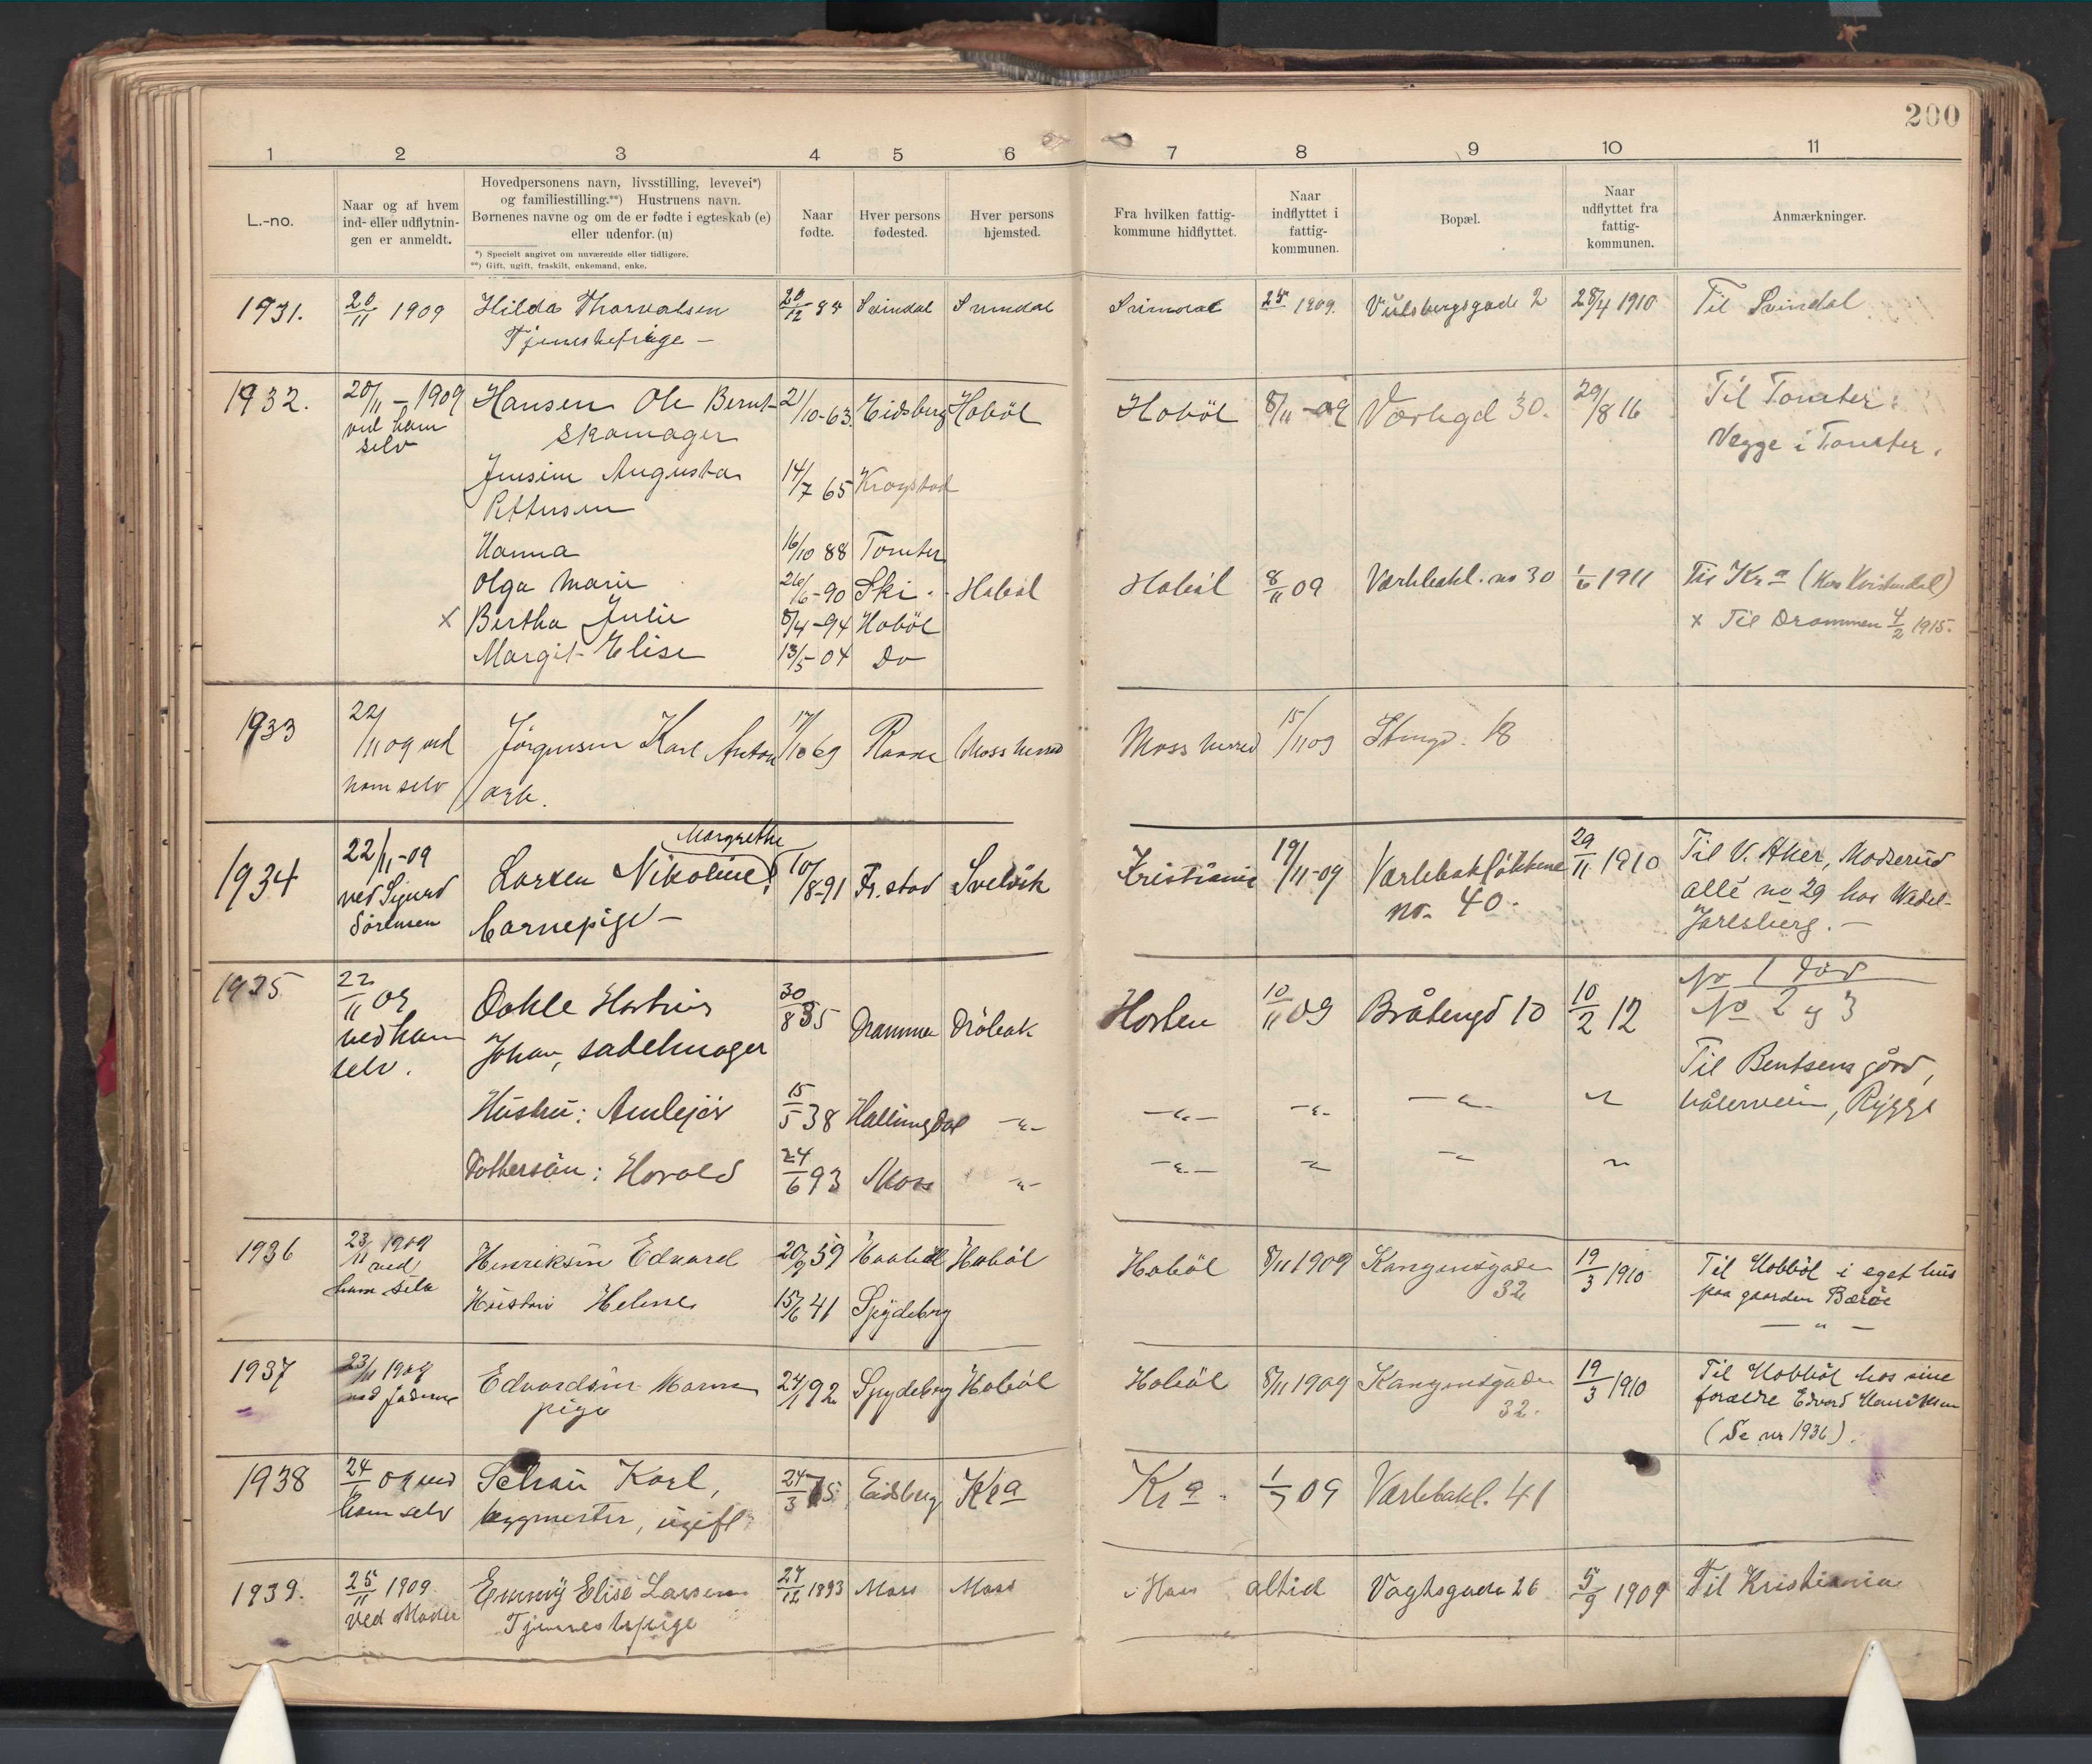 200
1 2 3 4 5 6 7 8 9 10 11
L.-no.
Naar og af hvem
ind- eller udflytnin-
gen er anmeldt.
Hovedpersonens navn, livsstilling, levevei*)
og familiestilling.**) Hustruens navn.
Børnenes navne og om de er fødte i egteskab (e)
eller udenfor. (u)
*) Specielt angivet om nuværende eller tidligere.
**) Gift, ugift, fraskilt, enkemand, enke.
Naar
fødte.
Hver persons
fødested.
Hver persons
hjemsted.
Fra hvilken fattig-
kommune hidflyttet.
Naar
indflyttet i
fattig-
kommunen.
Bopæl.
Naar
udflyttet fra
fattig-
kommunen.
Anmærkninger.
1931. 20/11 1909 Hilda Thorvalsen 20/12 Svindal Svindal Svindal 1909. Vulsbergsgade 2 28/4 1910 Til Svindal
Tjenestepige –
1932. 20/11 – 1909 Hansen Ole Bernt 2/10-63 Eidsberg Hobøl Hobøl 8/11-09 Værkgd 30. 29/8 16 Til Tomter.
ved ham Skomager Vegge i Tomter.
selv
Jensine Augusta 14/7 65 Krogstad
Pettersen
Hanna 16/10 88 Tomter
Olga Marie 26/6-90 Ski Hobøl Hobøl 8/11 09 Værkbakl. no 30 1/6 1911 Til Kra
x Bertha Julie 8/4-94 Hobøl x Til Drammen 4/2 1915.
Margit Elise 13/5-04 Do
1933 22/11 09 ved Jørgensen Karl Anton 17/10 69 Moss herred Moss herred 15/11 09 18
ham selv arb.
1934 22/11-09 Larsen Nikoline Margrethe 10/8-91 Fr.stad Svelvik Kristiania 19/11-09 Værkbakløkkene 29/11 1910 Til V. Aker, Madserud
ved Sigurd no. 40. allé no 29 hos Wedel-
Sørensen barnepige – Jarlsberg. –
1935 22/11 09 30/8 35 Drammen Drøbak Horten 10/11 09 Bråtengd 10 10/2 12 No 1 død
ved ham Johan, sadelmager No 2 og 3
selv. Til Bentsens gård,
Hustru: 15/5 38 Hallingdal –"– –"– –"– –"– " Vålerveien, Rygge
Dattersøn: Harald 24/6 93 Moss –"– –"– –"– –"– "
1936 23/11 1909 Henriksen Edvard 20/9 59 Hobøl Hobøl 8/11 1909 Kongensgade 19/3 1910 Til Hobbøl i eget hus
ved 32 paa gaarden
ham selv Hustru Helene 15/6 41 Spydeberg — " —
1937 23/11 1909 Edvardsen 24/1 92 Spydeberg Hobøl Hobøl 8/11 1909 Kongensgaden 19/3 1910 Til Hobbøl hos sine
pige 32. forældre Edvard Henriksen
(Se nr 1936).
1938 24/11 09 ved Karl, 24/3 75 Eidsberg Kra Kra. 1/7 09 Værkbakl. 41
ham selv bygmester, ugift
1939. 25/11 1909 Emmy Elise Larsen 27/12 1893 Moss Moss Moss altid Vogtsgade 26 5/9 1909 Til Kristiania
ved Moder Tjenestepige